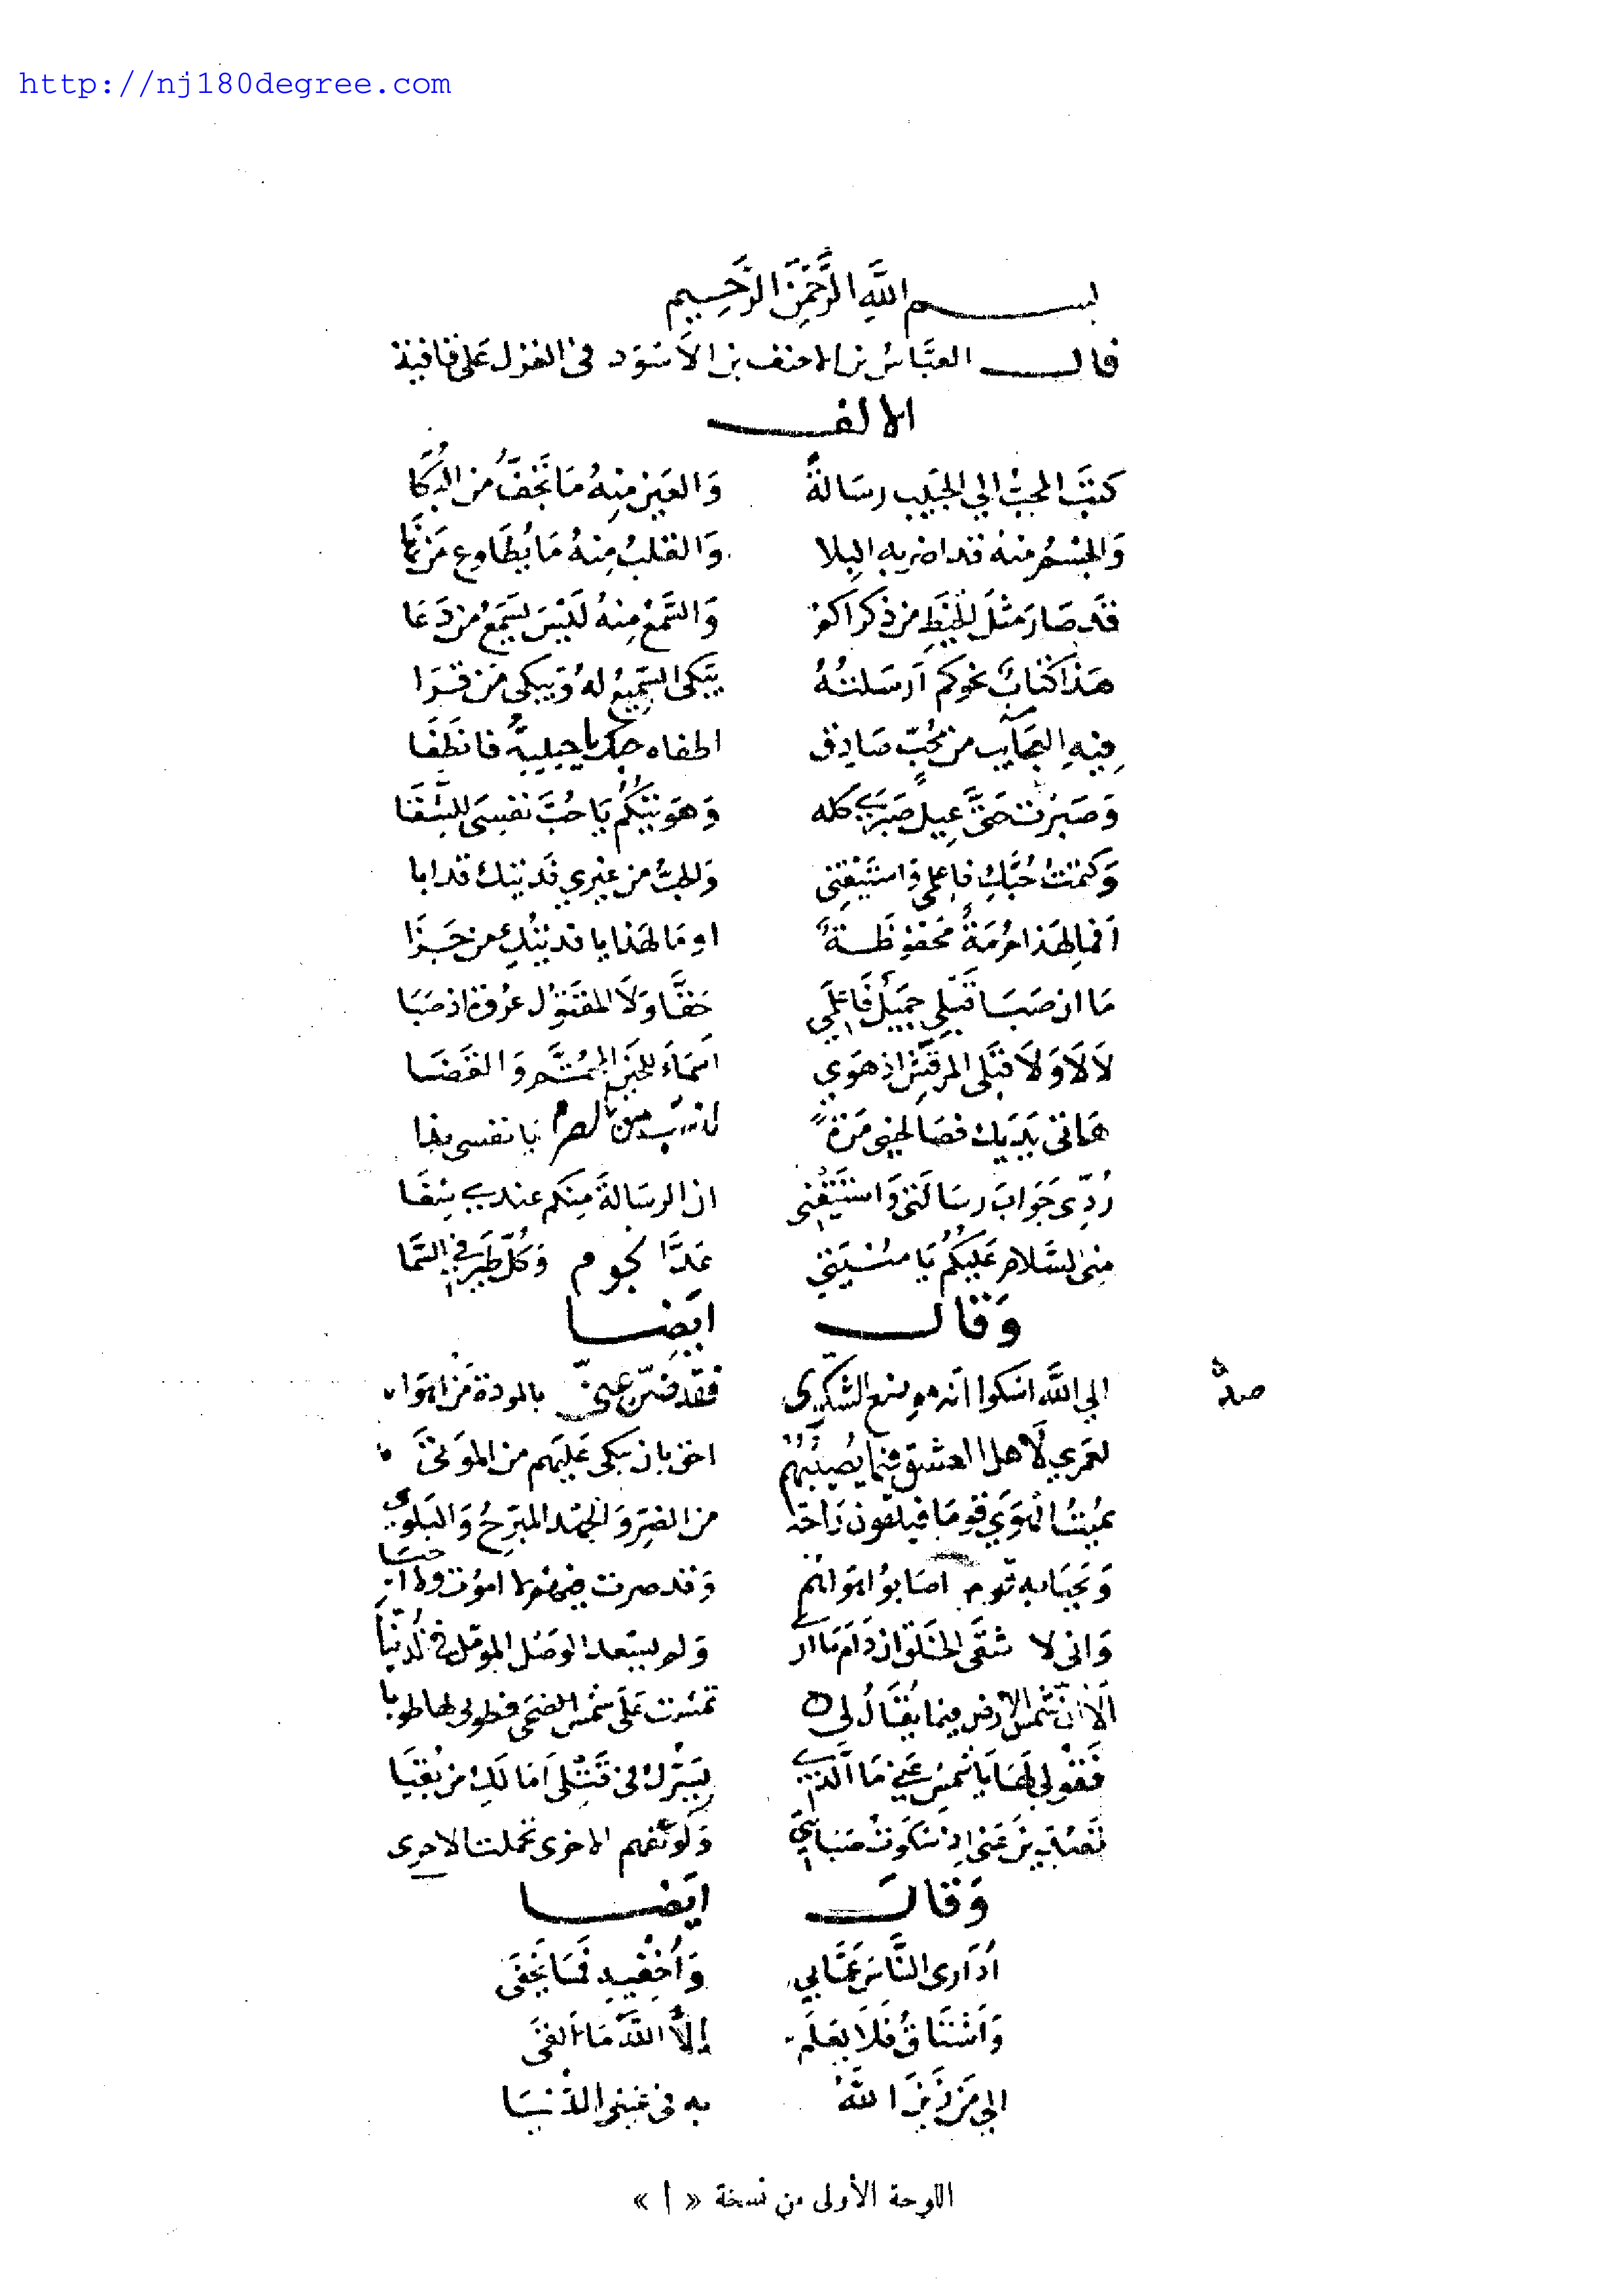 http://nj180degree.com
بسم اللَّهِ الرَّحْمَنِ الرَّحِيم
قال العبَّاسُ بن الاحنف بن الاَسْوَد فى الغزل عَلى قافية
الالف
كتبَ المحبُّ الي الحبَيب رسَالةً وَالعَين منِهُ مَا تجَفُّ من البُكَا
وَالجسْمُ منهُ قد اضر به البلا وَالقلبُ مِنهُ مَا يُطَاوع مَن نهَا
قَد صَارَ مثلَ الخيَطِ من ذكراكم وَالسَّمعُ مِنهُ لَيْسَ يَسمَعُ من دَعَا
هَذا كتابٌ نحوكم اَرسَلتُهُ يَبكى السَّمِيعُ لهُ وَيبكى مَن قرَا
فِيهِ العجَايب من محُبّ صَادِق اطفاه حبك يا حبيبةُ فانطَفَا
وَصَبرْت حَتَّى عِيلَ صَبرَي كله وَهوَيتكُم يَا حُبَّ نفسى للشقَا
وَكتمْتُ حُبَّكِ فاعلمى وَاستَيْقِنى وَالحبُّ من غيري فَديتك قد ابا
اَفما لهَذا حُرمَةٌ مَحفوُظَةٌ او مَا لهَذا يا فديتُكِ من جَزَا
مَا ان صَبَا قَبْلِي جَميلٌ فَاعْلَمي حَقَّا وَلاَ المقتوُل عُروَة اذ صَبَا
لاَ لاَ وَلاَ قبْلى المرقّشُ اذ هَوَي اَسمَاءَ للحَين المحُتَّم وَالقَضَا
هَاتى يَدَيك فصَالحِينى مَرَةً يَا نفسى بذا
رُدِّى جَوَابَ رسَالَتى وَاستَيْقِنى ان الرسَالةَ مِنكم عندي شِفَا
منى السَّلام عَليكُم يَا منُيتى عَدَّا نجوم وَكُلّ طَير في السَّمَا
وَقال ايَضا
الي اللَّه اشكوا انه موضع الشكوى فقد صَدّ عنى بالمودة مَن اهوَا
لعَمري لَأهل العشق فيمَا يُصيبُهُم احق بان نبكى عَليهم من الموَتىَ
يميُتُ الهَوَي قومَا فيلقون رَاحَة من الضرّ وَالجَهد المبَرِّحُ وَالبَلوَي
وَيحيَا به قوم اصَابوُا هوَاهُم وَقد صرت فيهم لا اموُت ولا احيَا
وَانى لاشقَى الخلق ان دَامَ مَا ارَي وَلم يسَعد الوَصْل الموَمّل في الدُنيا
اَلاَ انّ شمس الارض فيما يُقَالُ لى تمشت عَلى شمس الضحَى فطوبى لها طوبا
فَقُولي لهَا يَا شَمسُ عَنى مَا الَّذي يسَرُّك فى قَتْلى اَمَا لَكِ من بُقيَا
تصُدين عَنى ان شكَوتُ صَبَابتي وَلوَ تفهم الاخرى تحملت الاحرى
وَقالَ ايَضا
اُدَارى النَّاسَ عَمَّا بي وَاُخْفِيهِ فَمَا يخَفَى
وَاَشتَاقُ فَلاَ يعَلَم إلَّا اللَّهُ مَا اَلقَى
الي مَن زَيَّنَ اللَّهُ به فى عَينى الدُّنيَا
اللوحة الأولى من نسخة « ا »